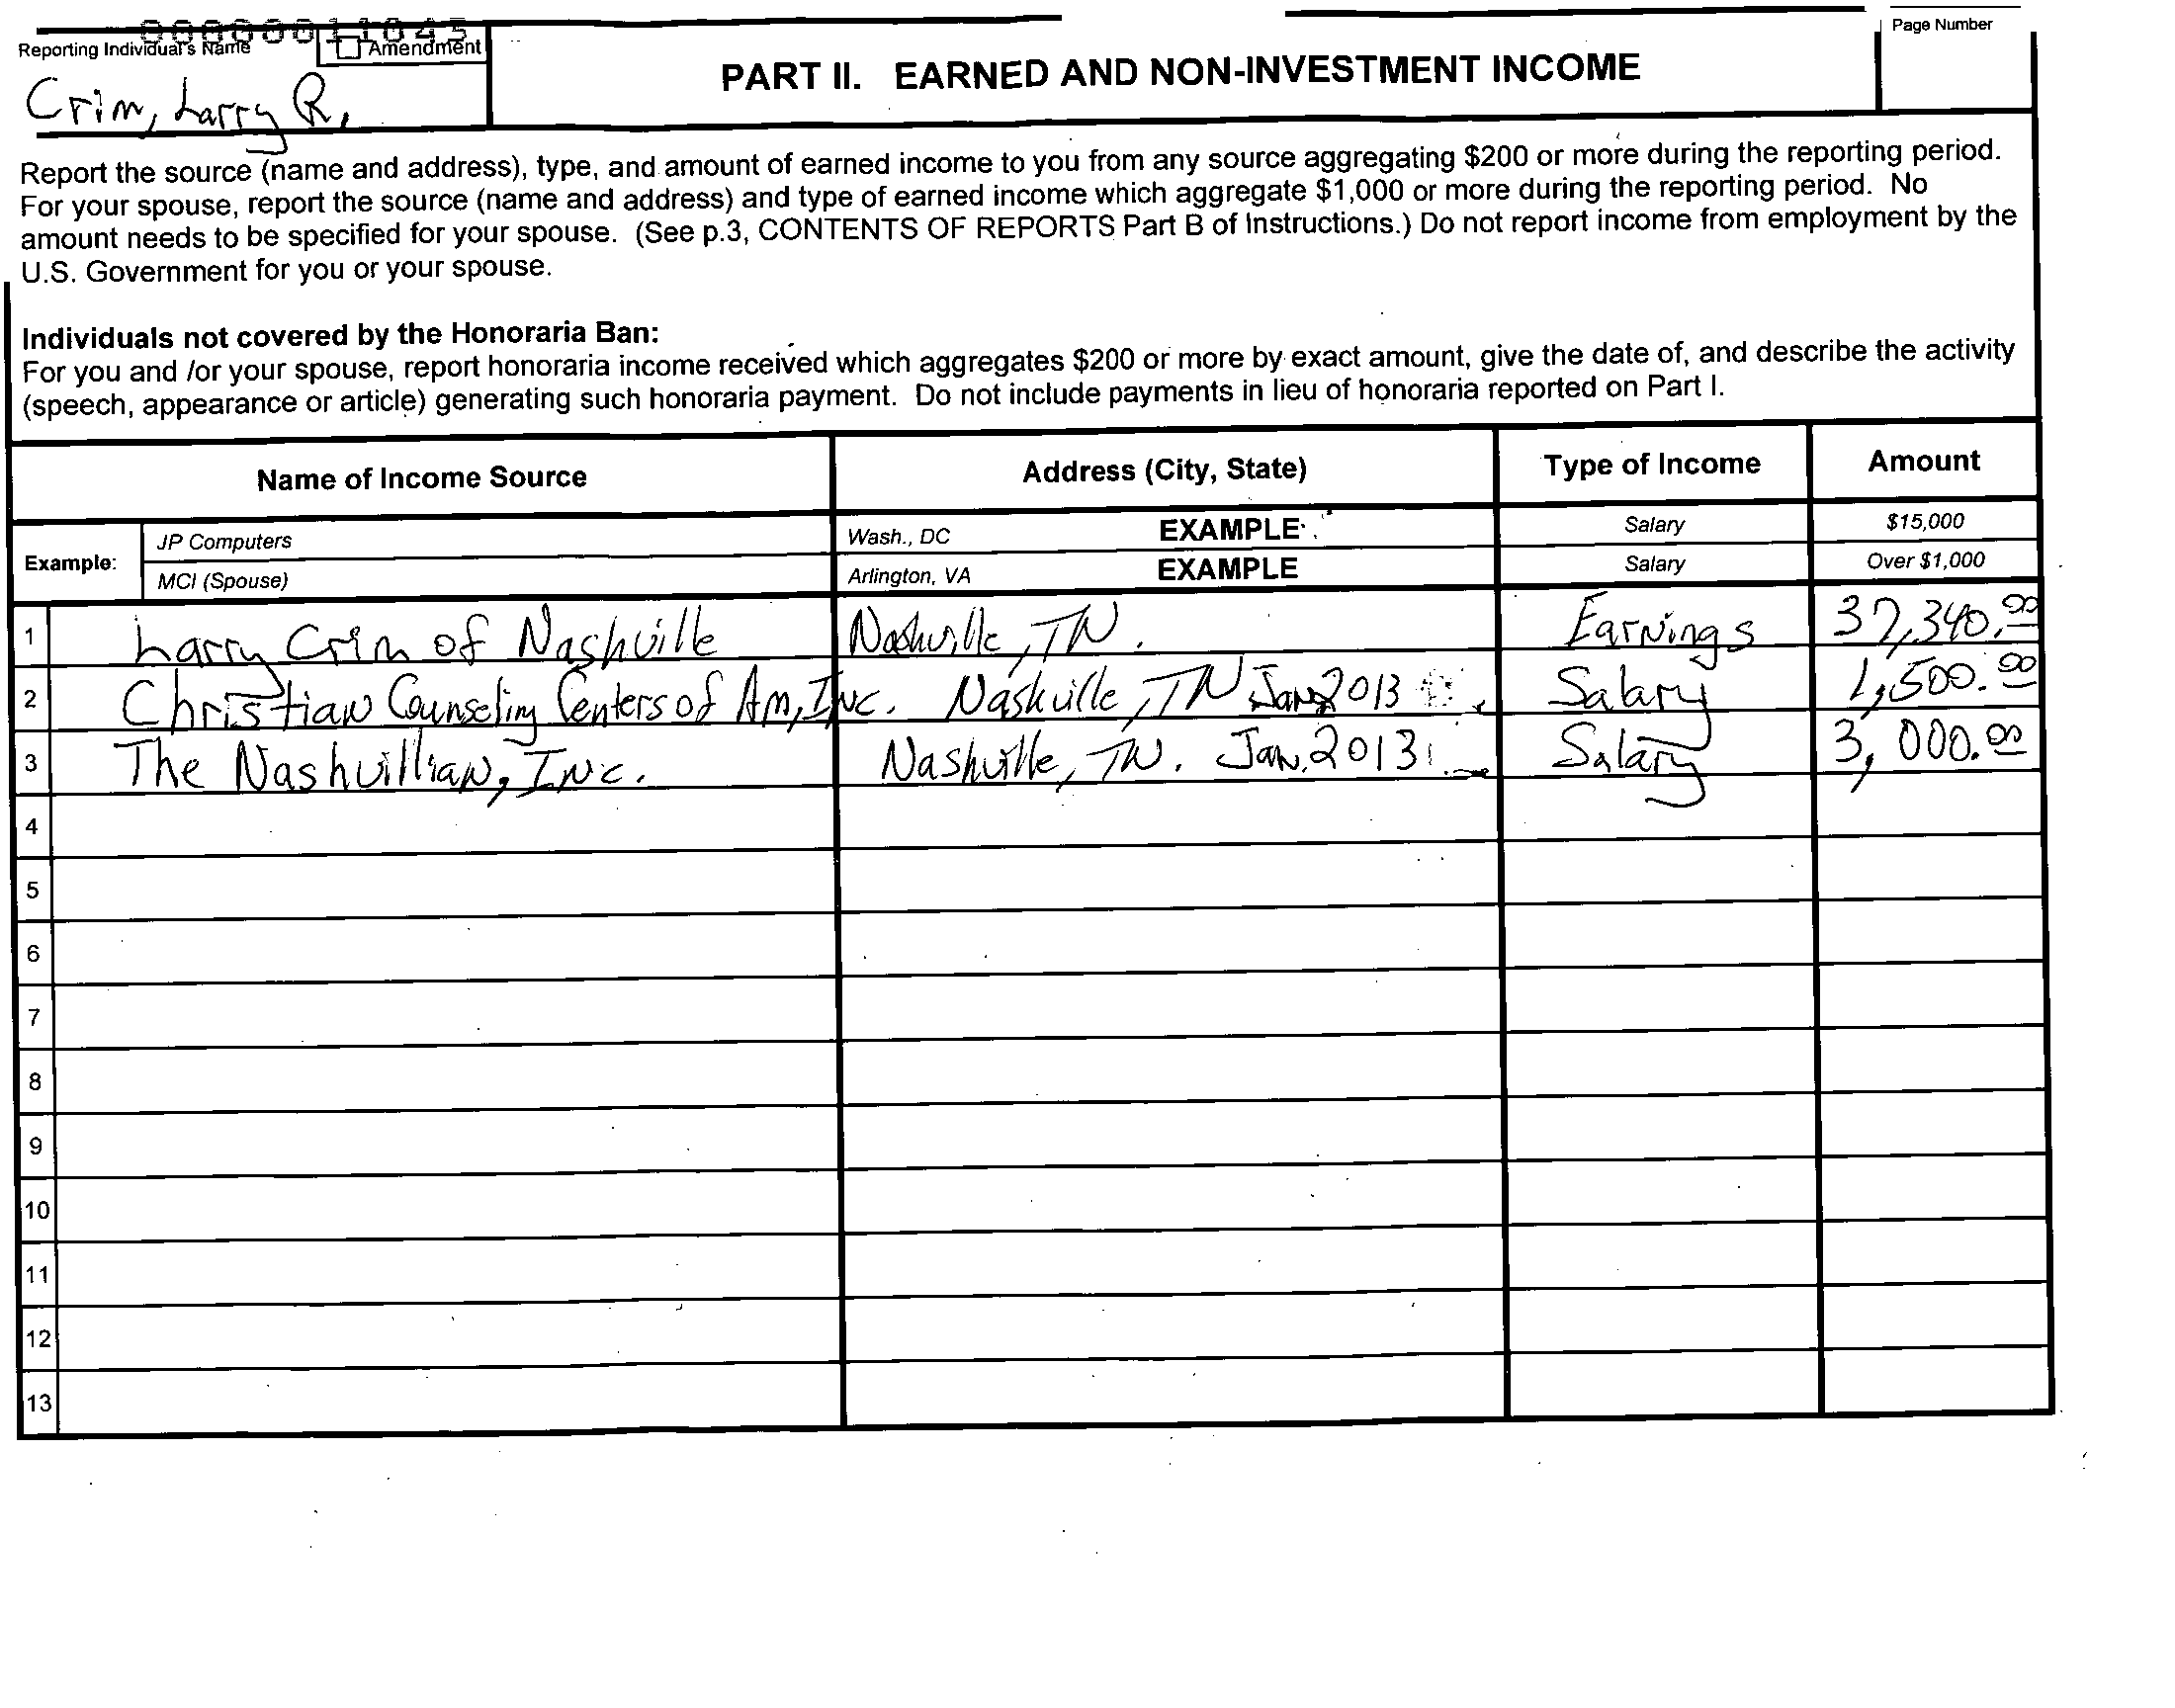 00000011045
Reporting Individual's Name Amendment Page Number
Crim, Larry R.
PART II. EARNED AND NON-INVESTMENT INCOME
Report the source (name and address), type, and amount of earned income to you from any source aggregating $200 or more during the reporting period.
For your spouse, report the source (name and address) and type of earned income which aggregate $1,000 or more during the reporting period. No
amount needs to be specified for your spouse. (See p.3, CONTENTS OF REPORTS Part B of Instructions.) Do not report income from employment by the
U.S. Government for you or your spouse.
Individuals not covered by the Honoraria Ban:
For you and /or your spouse, report honoraria income received which aggregates $200 or more by exact amount, give the date of, and describe the activity
(speech, appearance or article) generating such honoraria payment. Do not include payments in lieu of honoraria reported on Part I.
Name of Income Source Address (City, State) Type of Income Amount
Example: JP Computers Wash., DC EXAMPLE Salary $15,000
MCI (Spouse) Arlington, VA EXAMPLE Salary Over $1,000
1 Larry Crim of Nashville Nashville, TN. Earnings 37,340.00
2 Christian Counseling Centers of Am, Inc. Nashville, TN Jan 2013 Salary 1,500.00
3 The Nashvillian, Inc. Nashville, TN. Jan. 2013 Salary 3,000.00
4
5
6
7
8
9
10
11
12
13